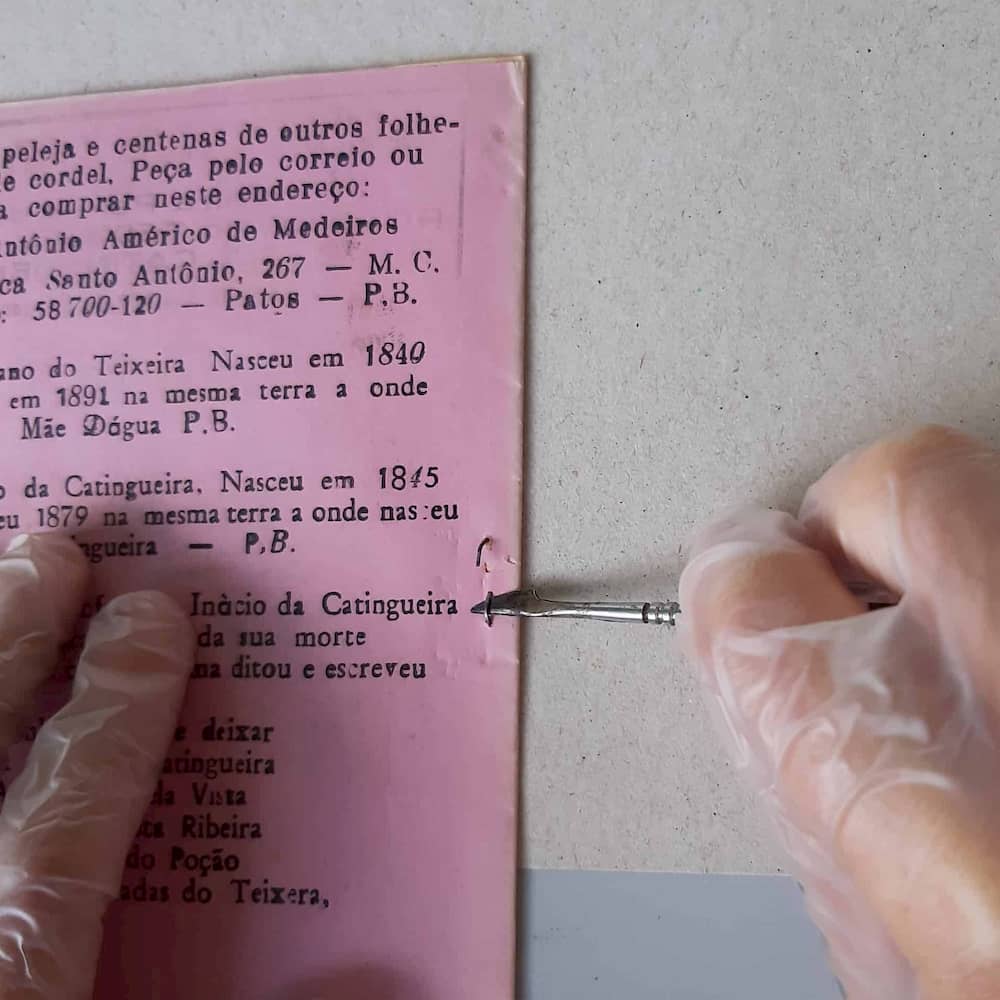 peleja e centenas de outros folhe-
e cordel. Peça pelo correio ou
a comprar neste endereço:
ntônio Américo de Medeiros
ca Santo Antônio, 267 — M. C.
: 58700-120 — Patos — P.B.
ano do Teixeira Nasceu em 1840
em 1891 na mesma terra a onde
Mãe Dágua P.B.
o da Catingueira. Nasceu em 1845
eu 1879 na mesma terra a onde nas:eu
ngueira — P.B.
Inàcio da Catingueira
da sua morte
na ditou e escreveu
e deixar
atingueira
da Vista
ta Ribeira
do Poção
adas do Teixera,